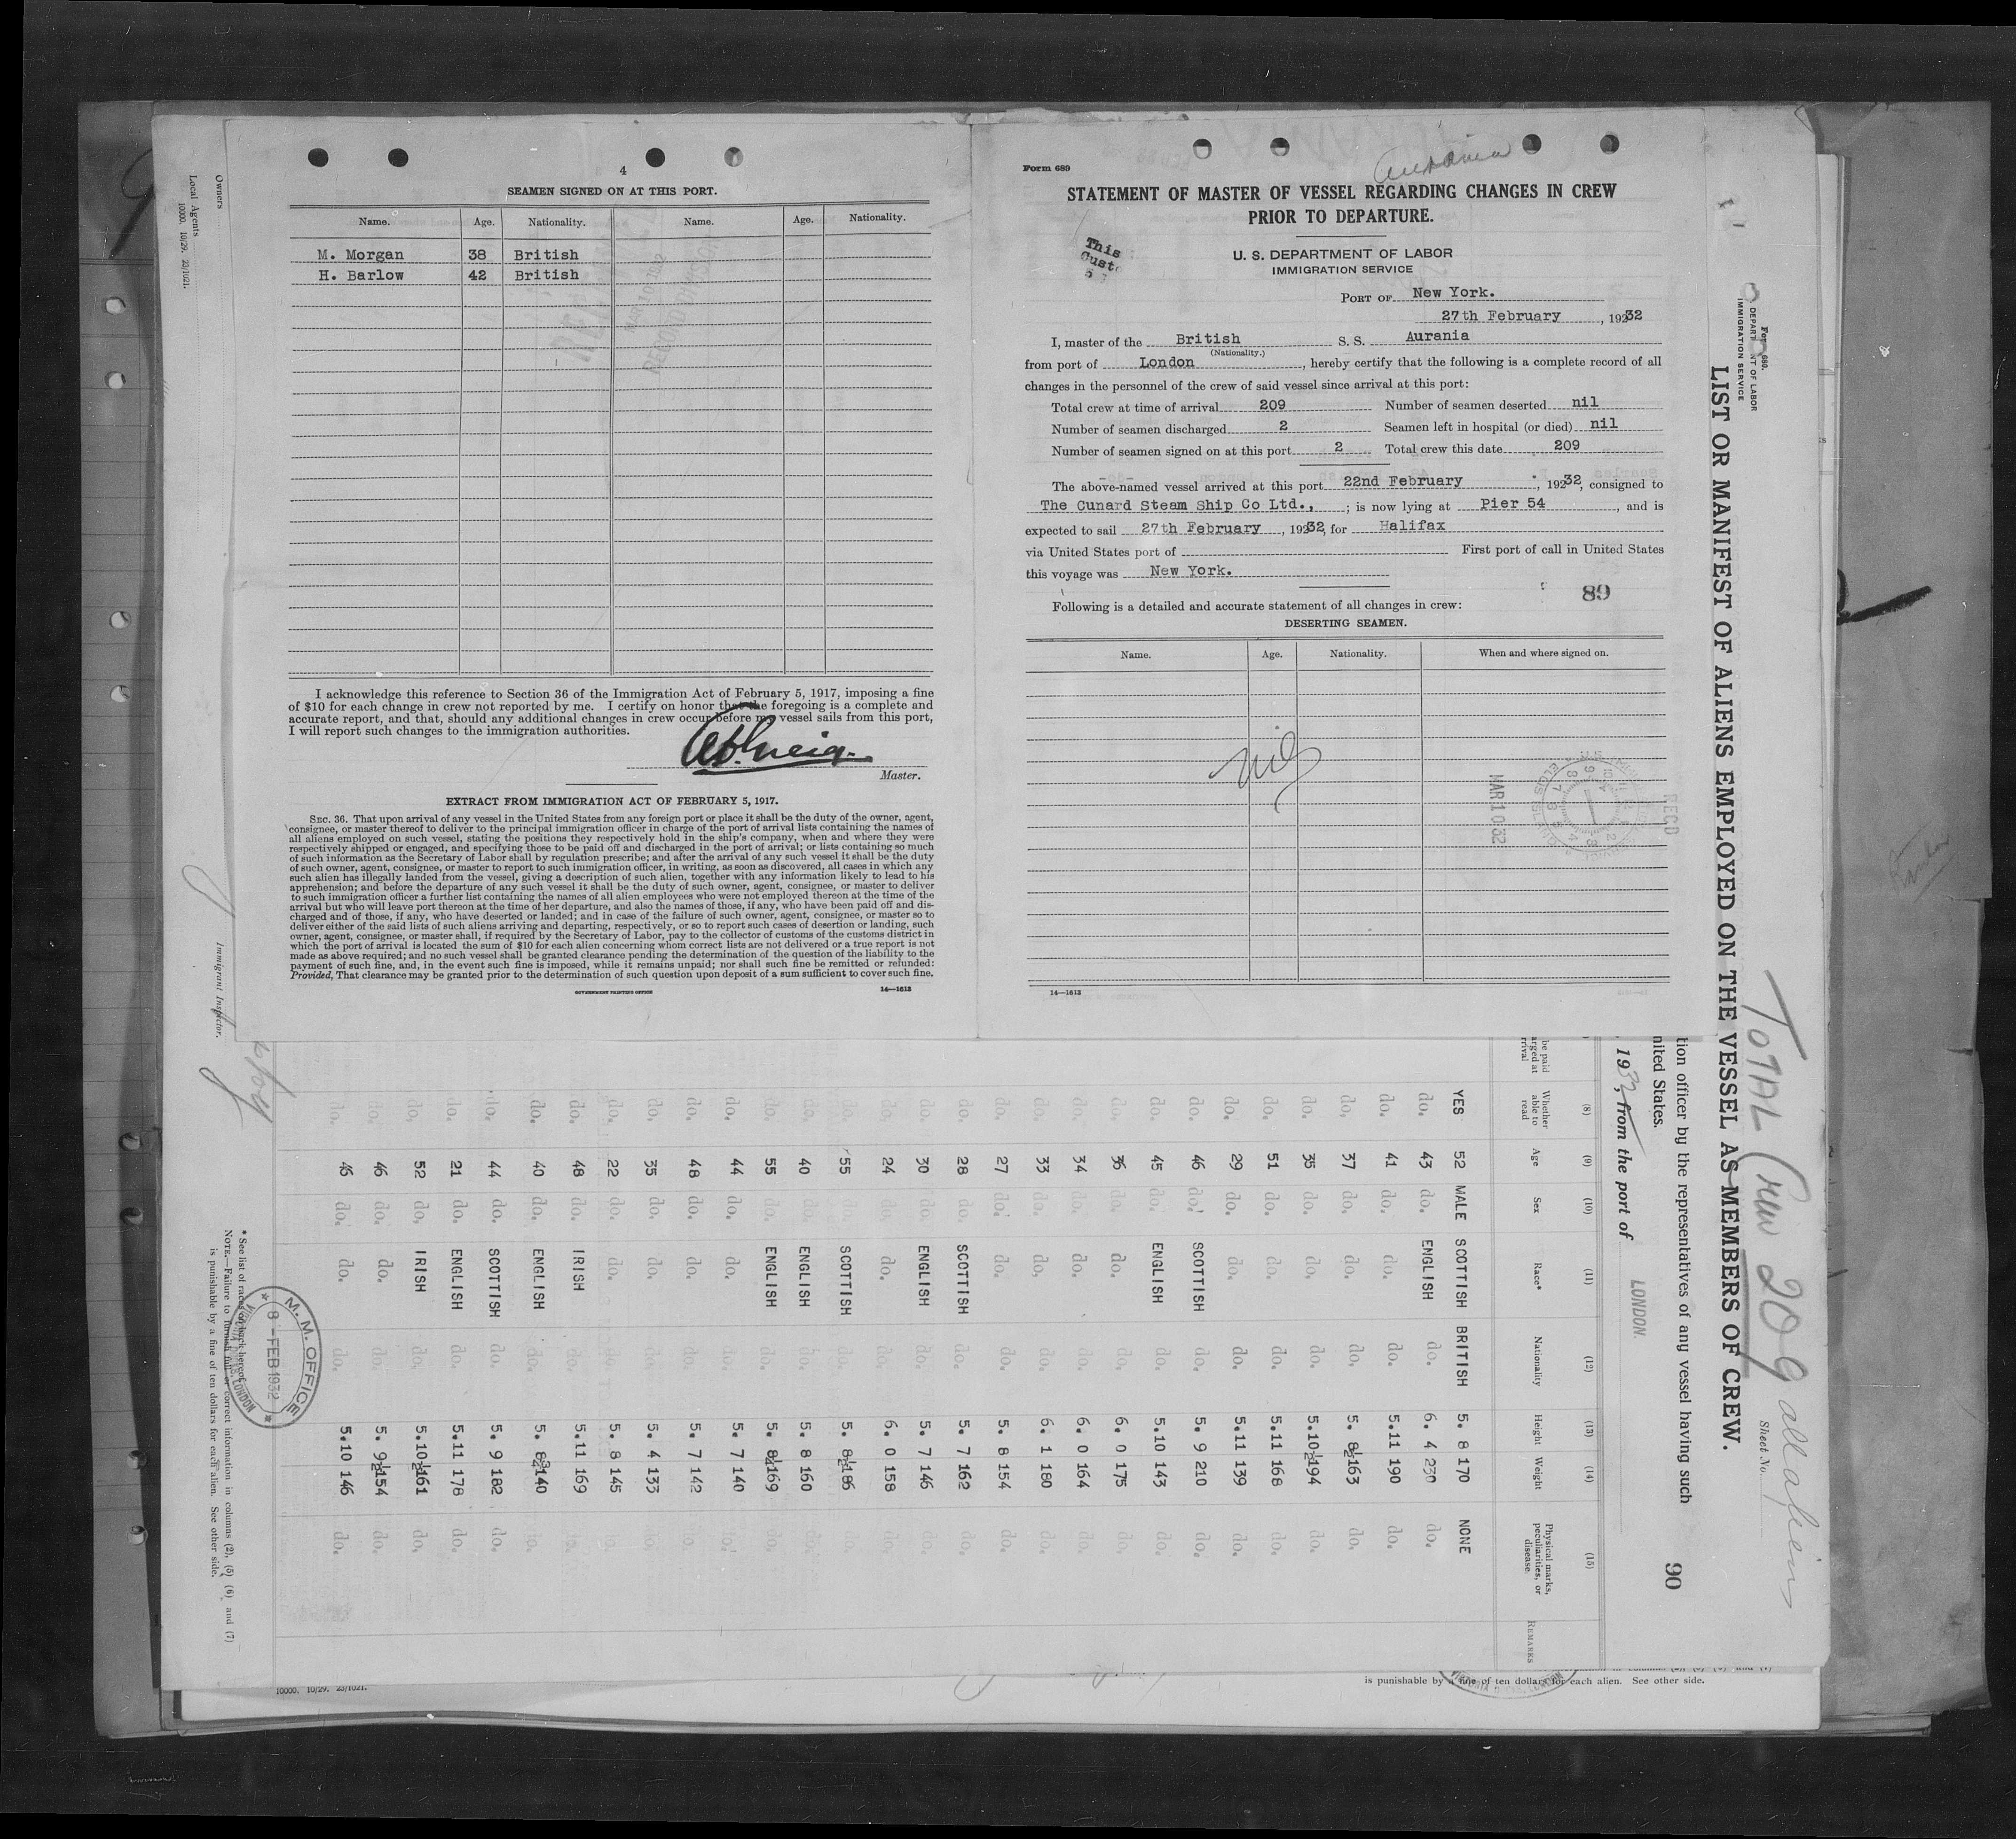 4
SEAMEN SIGNED ON AT THIS PORT.
Name. Age. Nationality. Name. Age. Nationality.
M. Morgan 38 British
H. Barlow 42 British
I acknowledge this reference to Section 36 of the Immigration Act of February 5, 1917, imposing a fine
of $10 for each change in crew not reported by me. I certify on honor that the foregoing is a complete and
accurate report, and that, should any additional changes in crew occur before my vessel sails from this port,
I will report such changes to the immigration authorities.
Master.
EXTRACT FROM IMMIGRATION ACT OF FEBRUARY 5, 1917.
SEC. 36. That upon arrival of any vessel in the United States from any foreign port or place it shall be the duty of the owner, agent,
consignee, or master thereof to deliver to the principal immigration officer in charge of the port of arrival lists containing the names of
all aliens employed on such vessel, stating the positions they respectively hold in the ship's company, when and where they were
respectively shipped or engaged, and specifying those to be paid off and discharged in the port of arrival; or lists containing so much
of such information as the Secretary of Labor shall by regulation prescribe; and after the arrival of any such vessel it shall be the duty
of such owner, agent, consignee, or master to report to such immigration officer, in writing, as soon as discovered, all cases in which any
such alien has illegally landed from the vessel, giving a description of such alien, together with any information likely to lead to his
apprehension; and before the departure of any such vessel it shall be the duty of such owner, agent, consignee, or master to deliver
to such immigration officer a further list containing the names of all alien employees who were not employed thereon at the time of the
arrival but who will leave port thereon at the time of her departure, and also the names of those, if any, who have been paid off and dis-
charged and of those, if any, who have deserted or landed; and in case of the failure of such owner, agent, consignee, or master so to
deliver either of the said lists of such aliens arriving and departing, respectively, or so to report such cases of desertion or landing, such
owner, agent, consignee, or master shall, if required by the Secretary of Labor, pay to the collector of customs of the customs district in
which the port of arrival is located the sum of $10 for each alien concerning whom correct lists are not delivered or a true report is not
made as above required; and no such vessel shall be granted clearance pending the determination of the question of the liability to the
payment of such fine, and, in the event such fine is imposed, while it remains unpaid; nor shall such fine be remitted or refunded:
Provided, That clearance may be granted prior to the determination of such question upon deposit of a sum sufficient to cover such fine.
GOVERNMENT PRINTING OFFICE 14—1613
Form 689
STATEMENT OF MASTER OF VESSEL REGARDING CHANGES IN CREW
PRIOR TO DEPARTURE.
This
U. S. DEPARTMENT OF LABOR
IMMIGRATION SERVICE
PORT OF New York.
27th February, 192 32
I, master of the British S. S. Aurania
(Nationality.)
from port of London, hereby certify that the following is a complete record of all
changes in the personnel of the crew of said vessel since arrival at this port:
Total crew at time of arrival 209 Number of seamen deserted nil
Number of seamen discharged 2 Seamen left in hospital (or died) nil
Number of seamen signed on at this port 2 Total crew this date 209
The above-named vessel arrived at this port 22nd February, 192 32, consigned to
The Cunard Steam Ship Co Ltd., ; is now lying at Pier 54, and is
expected to sail 27th February, 192 32, for Halifax
via United States port of First port of call in United States
this voyage was New York.
89
Following is a detailed and accurate statement of all changes in crew:
DESERTING SEAMEN.
Name. Age. Nationality. When and where signed on.
nil
MAR 10 32
REC'D
14—1613
Form 680.
DEPARTMENT OF LABOR
IMMIGRATION SERVICE
LIST OR MANIFEST OF ALIENS EMPLOYED ON THE VESSEL AS MEMBERS OF CREW.
TOTAL Crew 209 all aliens
Sheet No. 1
90
tion officer by the representatives of any vessel having such
nited States.
, 1932, from the port of LONDON.
(8) (9) (10) (11) (12) (13) (14) (15)
Whether able to read Age Sex Race* Nationality Height Weight Physical marks, peculiarities, or disease REMARKS
YES 52 MALE SCOTTISH BRITISH 5. 8 170 NONE
do. 43 do. ENGLISH do. 6. 4 230 do.
do. 41 do. do. do. 5.11 190 do.
do. 37 do. do. do. 5. 8½ 163 do.
do. 35 do. do. do. 5.10½ 194 do.
do. 51 do. do. do. 5.11 168 do.
do. 29 do. do. do. 5.11 139 do.
do. 46 do. SCOTTISH do. 5. 9 210 do.
do. 45 do. ENGLISH do. 5.10 143 do.
do. 36 do. do. do. 6. 0 175 do.
do. 34 do. do. do. 6. 0 164 do.
do. 33 do. do. do. 6. 1 180 do.
do. 27 do. do. do. 5. 8 154 do.
do. 28 do. SCOTTISH do. 5. 7 162 do.
do. 30 do. ENGLISH do. 5. 7 146 do.
do. 24 do. do. do. 6. 0 158 do.
do. 55 do. SCOTTISH do. 5. 8½ 186 do.
do. 40 do. ENGLISH do. 5. 8 160 do.
do. 55 do. ENGLISH do. 5. 8½ 169 do.
do. 44 do. do. do. 5. 7 140 do.
do. 48 do. do. do. 5. 7 142 do.
do. 35 do. do. do. 5. 4 133 do.
do. 22 do. do. do. 5. 8 145 do.
do. 48 do. IRISH do. 5.11 169 do.
do. 40 do. ENGLISH do. 5. 8 140 do.
do. 44 do. SCOTTISH do. 5. 9 182 do.
do. 21 do. ENGLISH do. 5.11 178 do.
do. 52 do. IRISH do. 5.10½ 161 do.
do. 46 do. do. do. 5. 9½ 154 do.
do. 46 do. do. do. 5.10 146 do.
M. M. OFFICE
8 - FEB 1932
LONDON
* See list of races on back hereof.
NOTE.—Failure to furnish full or correct information in columns (2), (5) (6) and (7)
is punishable by a fine of ten dollars for each alien. See other side.
Owners
Local Agents
10000. 10/29. 23/1021.
Immigrant Inspector.
10000. 10/29. 23/1021.
is punishable by a fine of ten dollars for each alien. See other side.